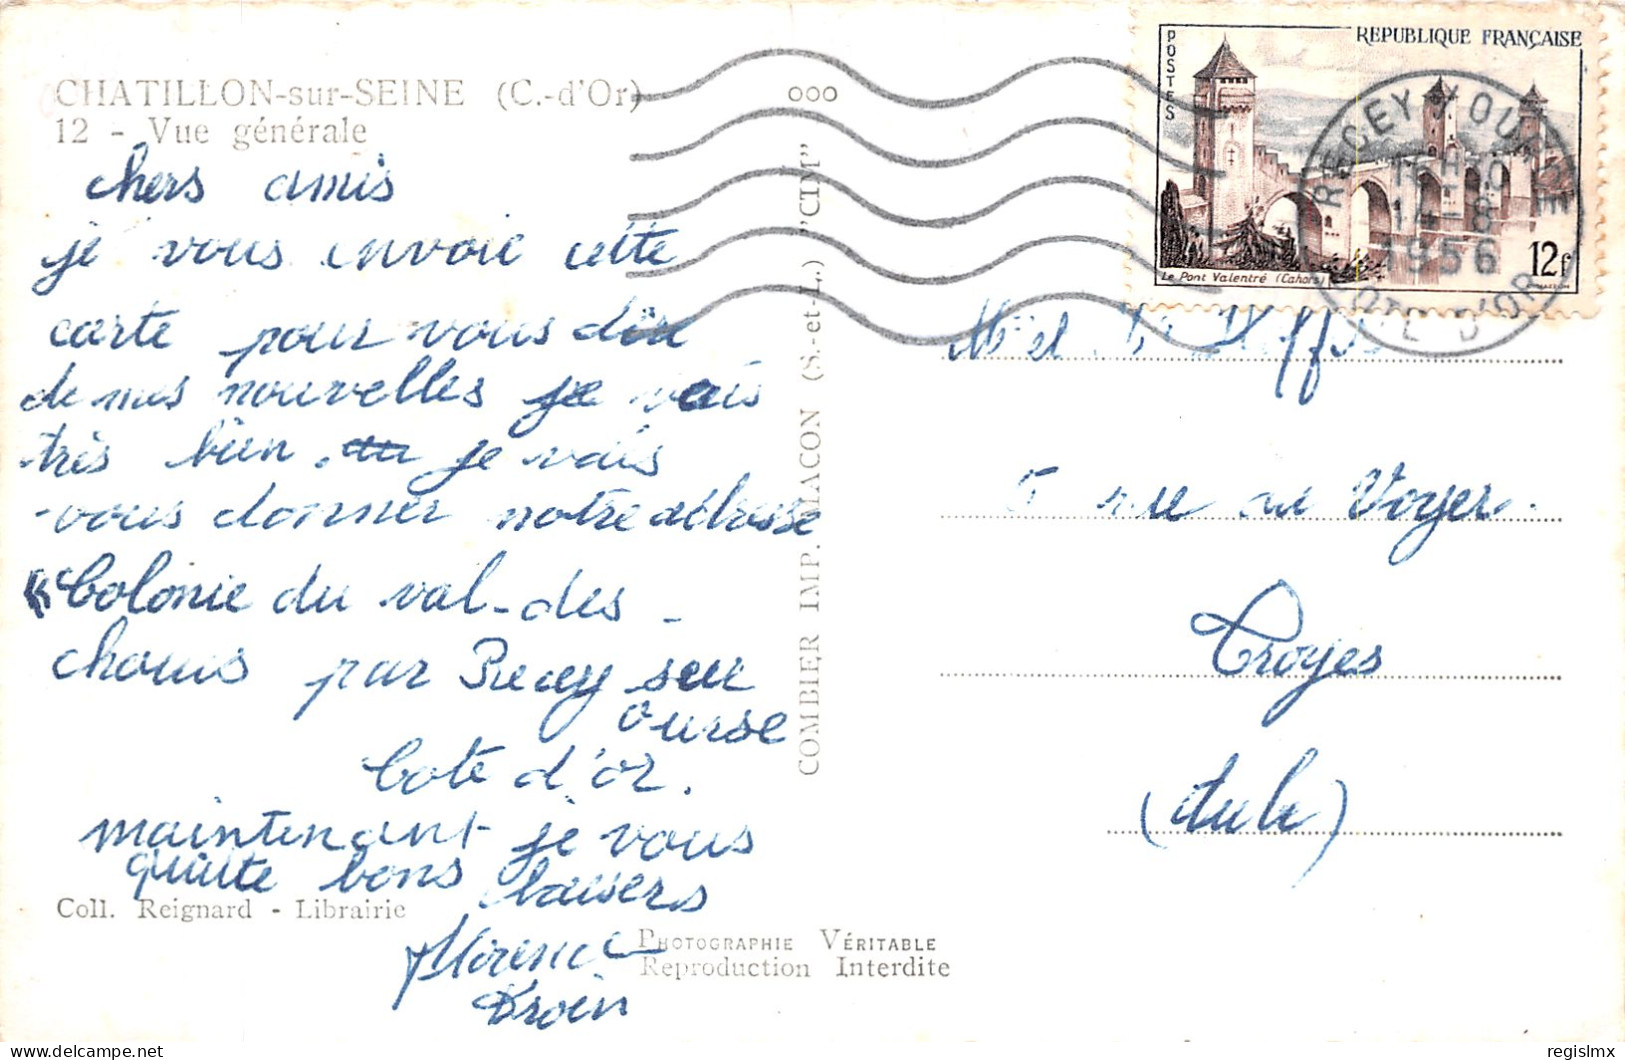 CHATILLON-sur-SEINE (C.-d'Or)
12 - Vue générale
chers amis
je vous envoie cette
carte pour vous dire
de mes nouvelles je vais
très bien. je vais
vous donner notre adresse
"Colonie du val-des-
choues par Recey sur
ourse
Cote d'or.
maintenant je vous
quitte bons baisers
Florence
Droin
Coll. Reignard - Librairie
PHOTOGRAPHIE VÉRITABLE
Reproduction Interdite
COMBIER IMP. MACON (S.-et-L.) "CIM"
POSTES
REPUBLIQUE FRANÇAISE
Le Pont Valentré (Cahors)
12f
RECEY S OURCE
14-8
1956
COTE D'OR
Mr et
5 rue du Voyer
Troyes
(Aube)
delcampe.net
regislmx